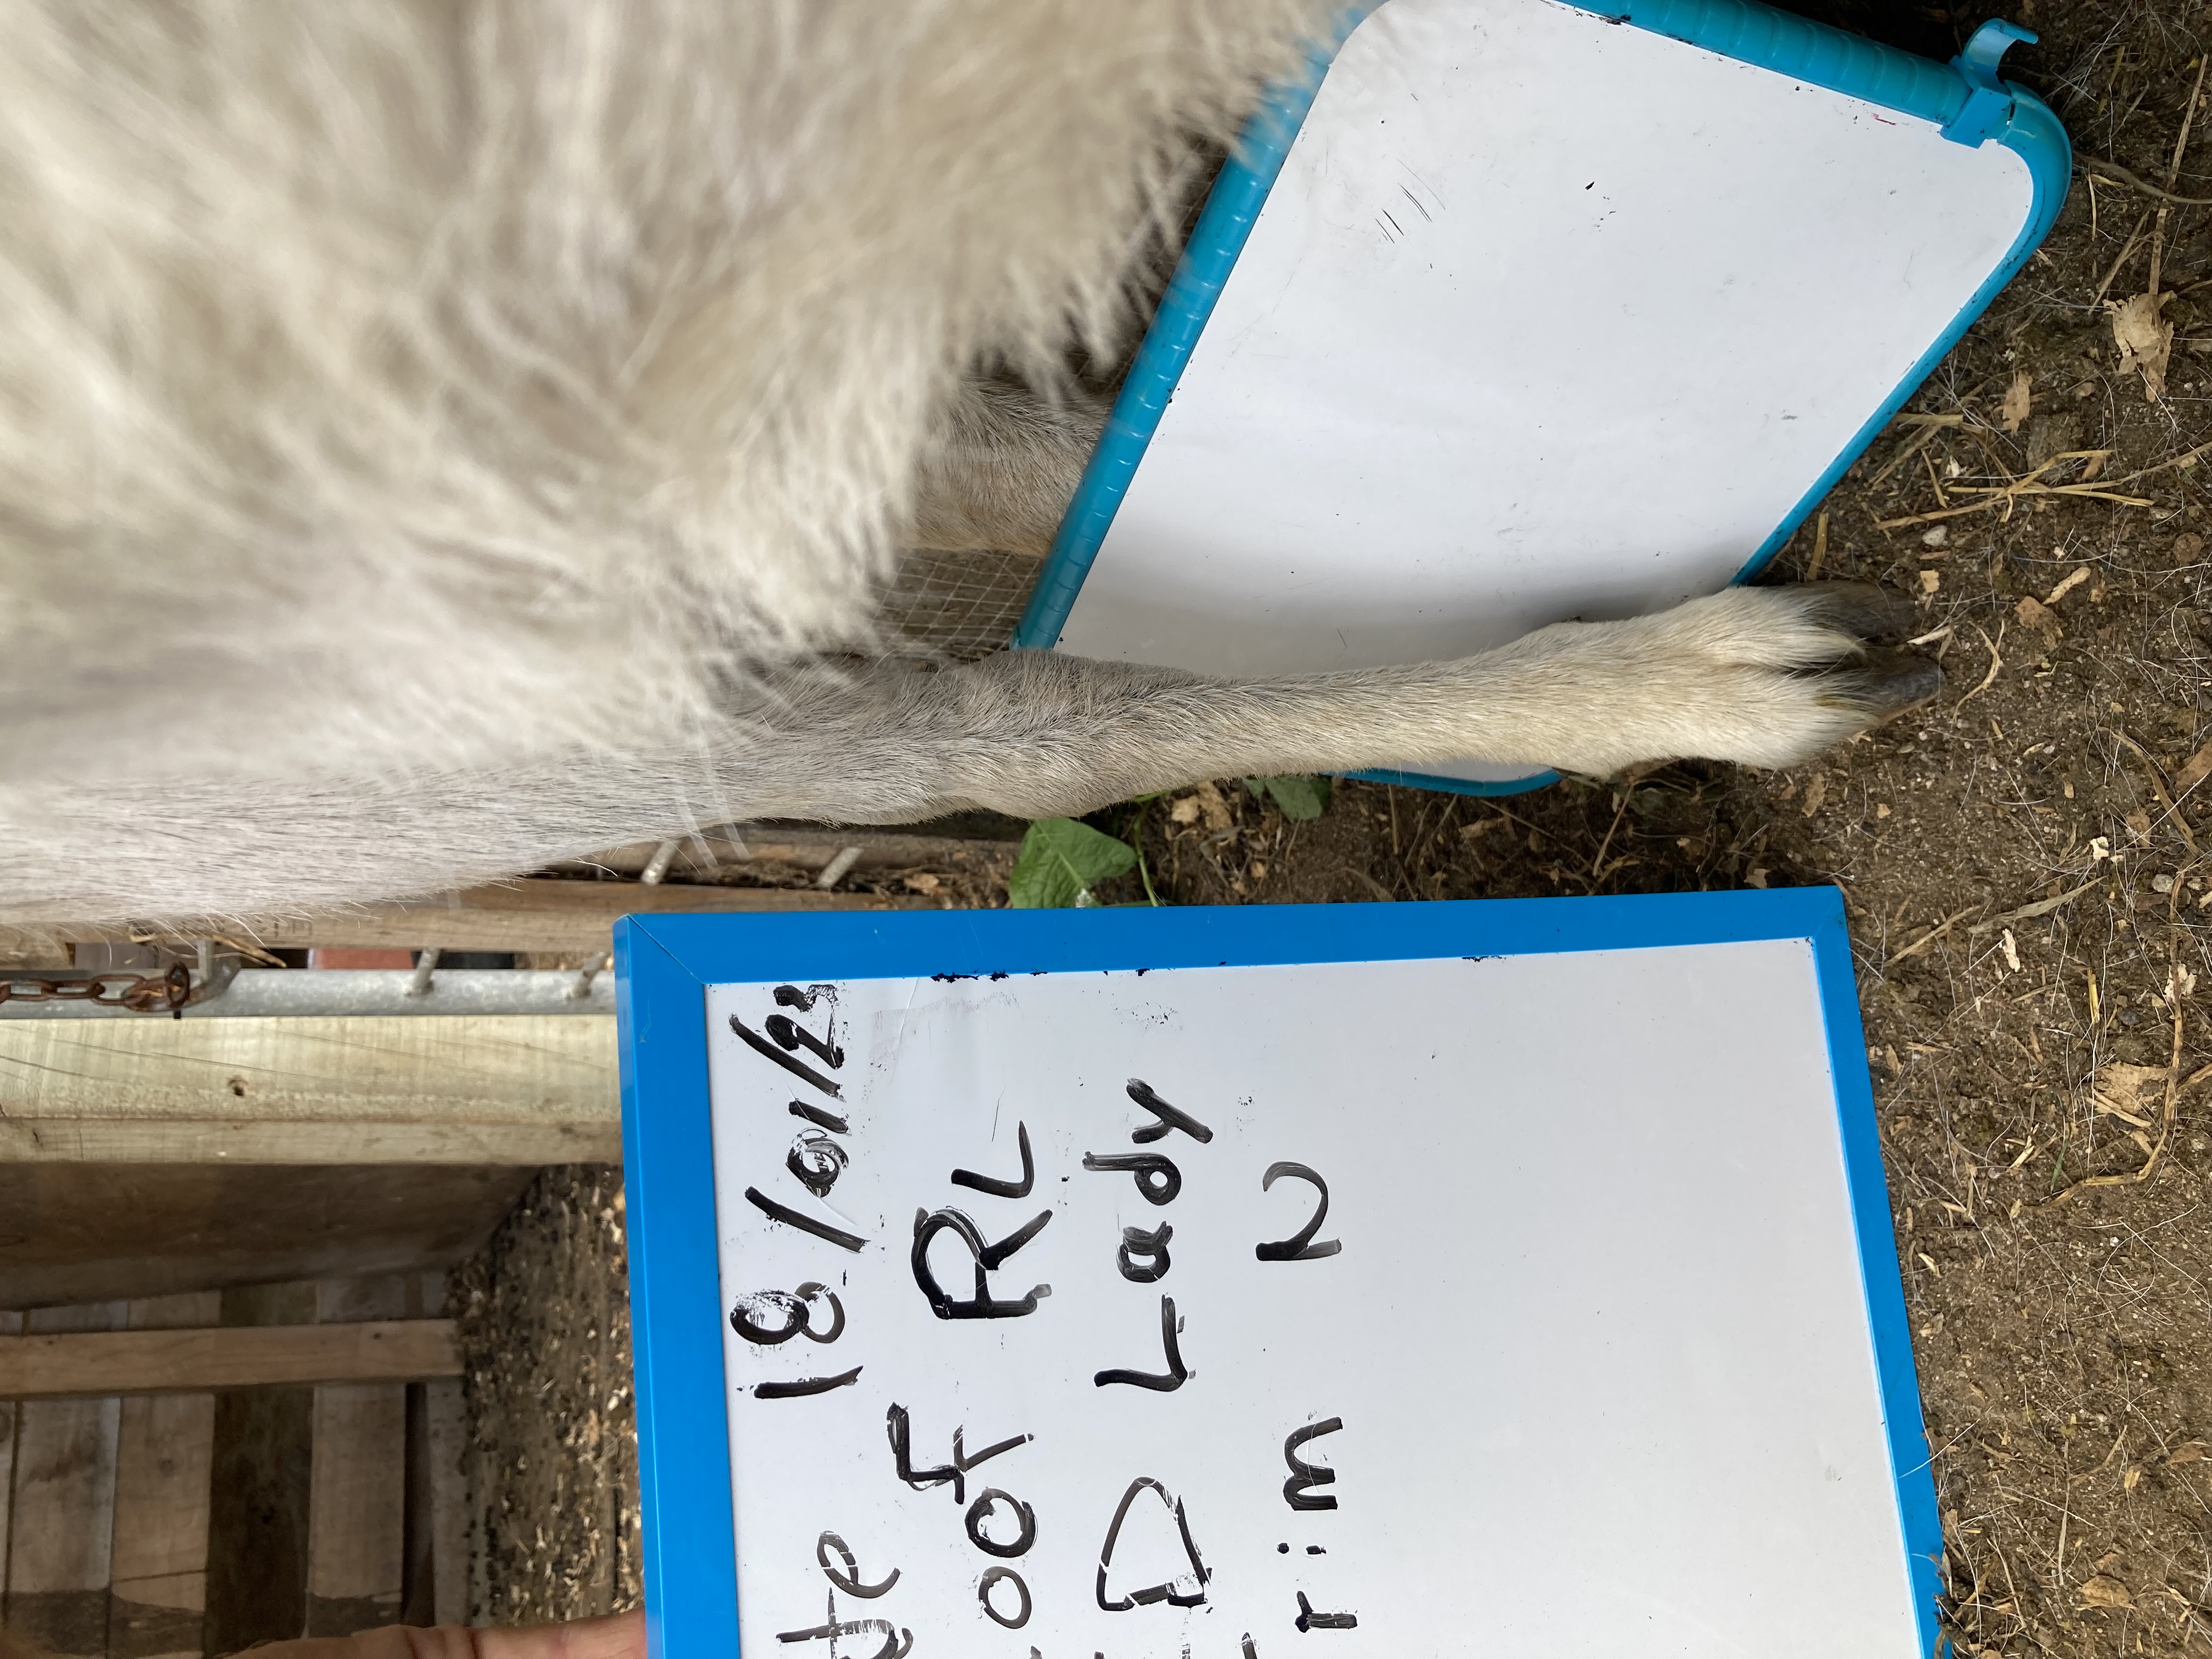 te 18/01/23
oof RL
D Lady
rim N